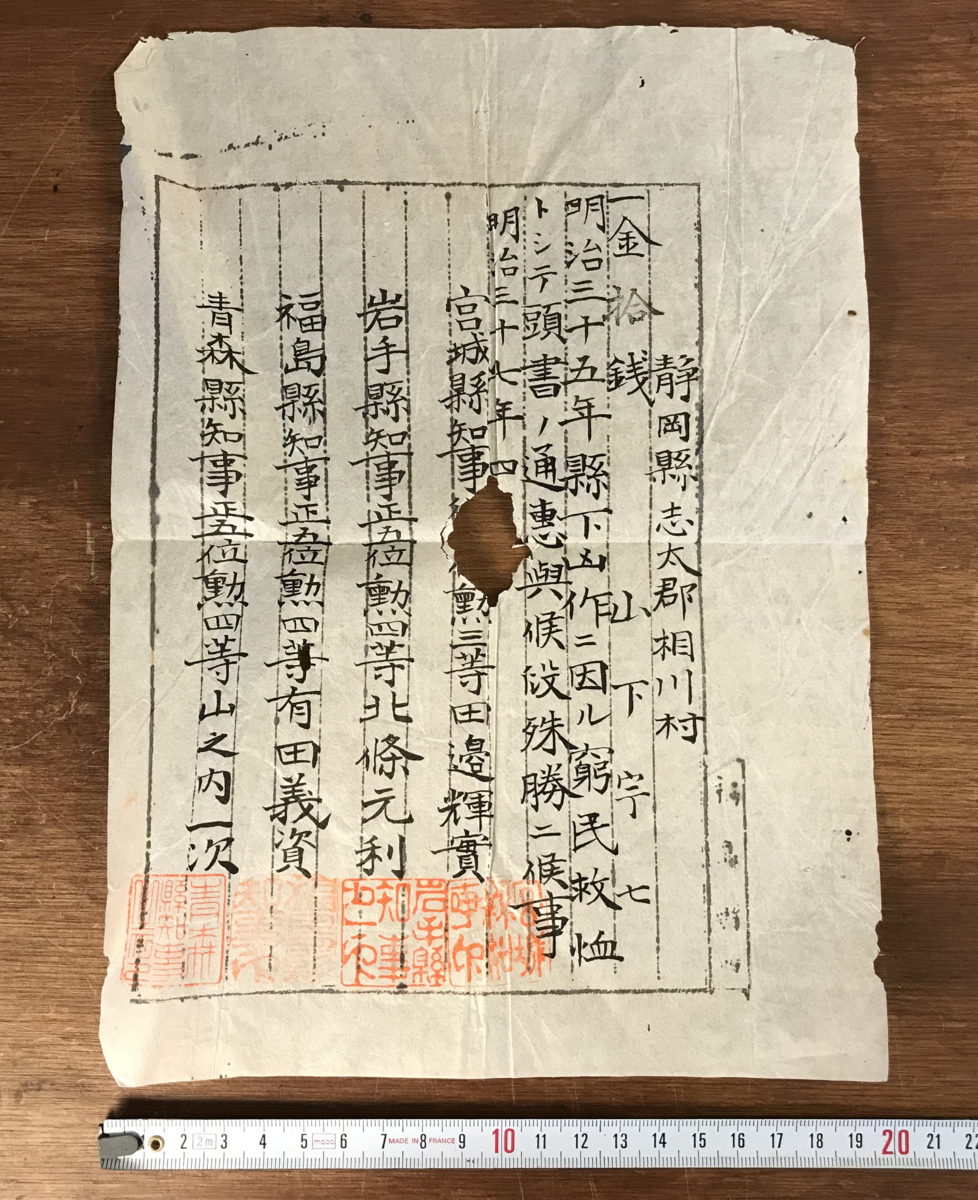 靜岡縣志太郡相川村
一金拾銭 山下宇七
明治三十五年縣下凶作ニ因ル窮民救恤
トシテ頭書ノ通惠與候段殊勝ニ候事
明治三十七年四
宮城縣知事 勲三等田邉輝實
岩手縣知事正五位勲四等北條元利
福島縣知事正五位勲四等有田義資
青森縣知事正五位勲四等山之内一次
岩手縣知事之印
青森縣知事
1 2 2m 3 4 5 mabo 6 7 MADE IN FRANCE 8 9 10 11 12 13 14 15 16 17 18 19 20 21 22